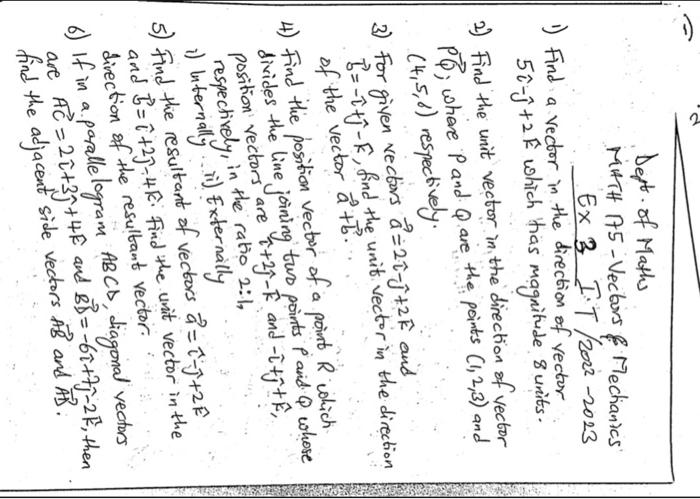 Dept. of Maths
MATH A5 - Vectors & Mechanics
Ex 3 I.T/2022-2023
1) Find a vector in the direction of vector
5î-ĵ+2k̂ which has magnitude 8 units.
2) Find the unit vector in the direction of vector
PQ⃗, where P and Q are the points (1,2,3) and
(4,5,6) respectively.
3) For given vectors a⃗=2î-ĵ+2k̂ and
b⃗=-î+ĵ-k̂, find the unit vector in the direction
of the vector a⃗+b⃗.
4) Find the position vector of a point R which
divides the line joining two points P and Q whose
position vectors are î+2ĵ-k̂ and -î+ĵ+k̂,
respectively, in the ratio 2:1,
i) Internally ii) Externally
5) Find the resultant of vectors a⃗=î-ĵ+2k̂
and b⃗=î+2ĵ-4k̂. Find the unit vector in the
direction of the resultant vector.
6) If in a parallelogram ABCD, diagonal vectors
are AC⃗=2î+3ĵ+4k̂ and BD⃗=-6î+7ĵ-2k̂, then
find the adjacent side vectors AB⃗ and AD⃗.